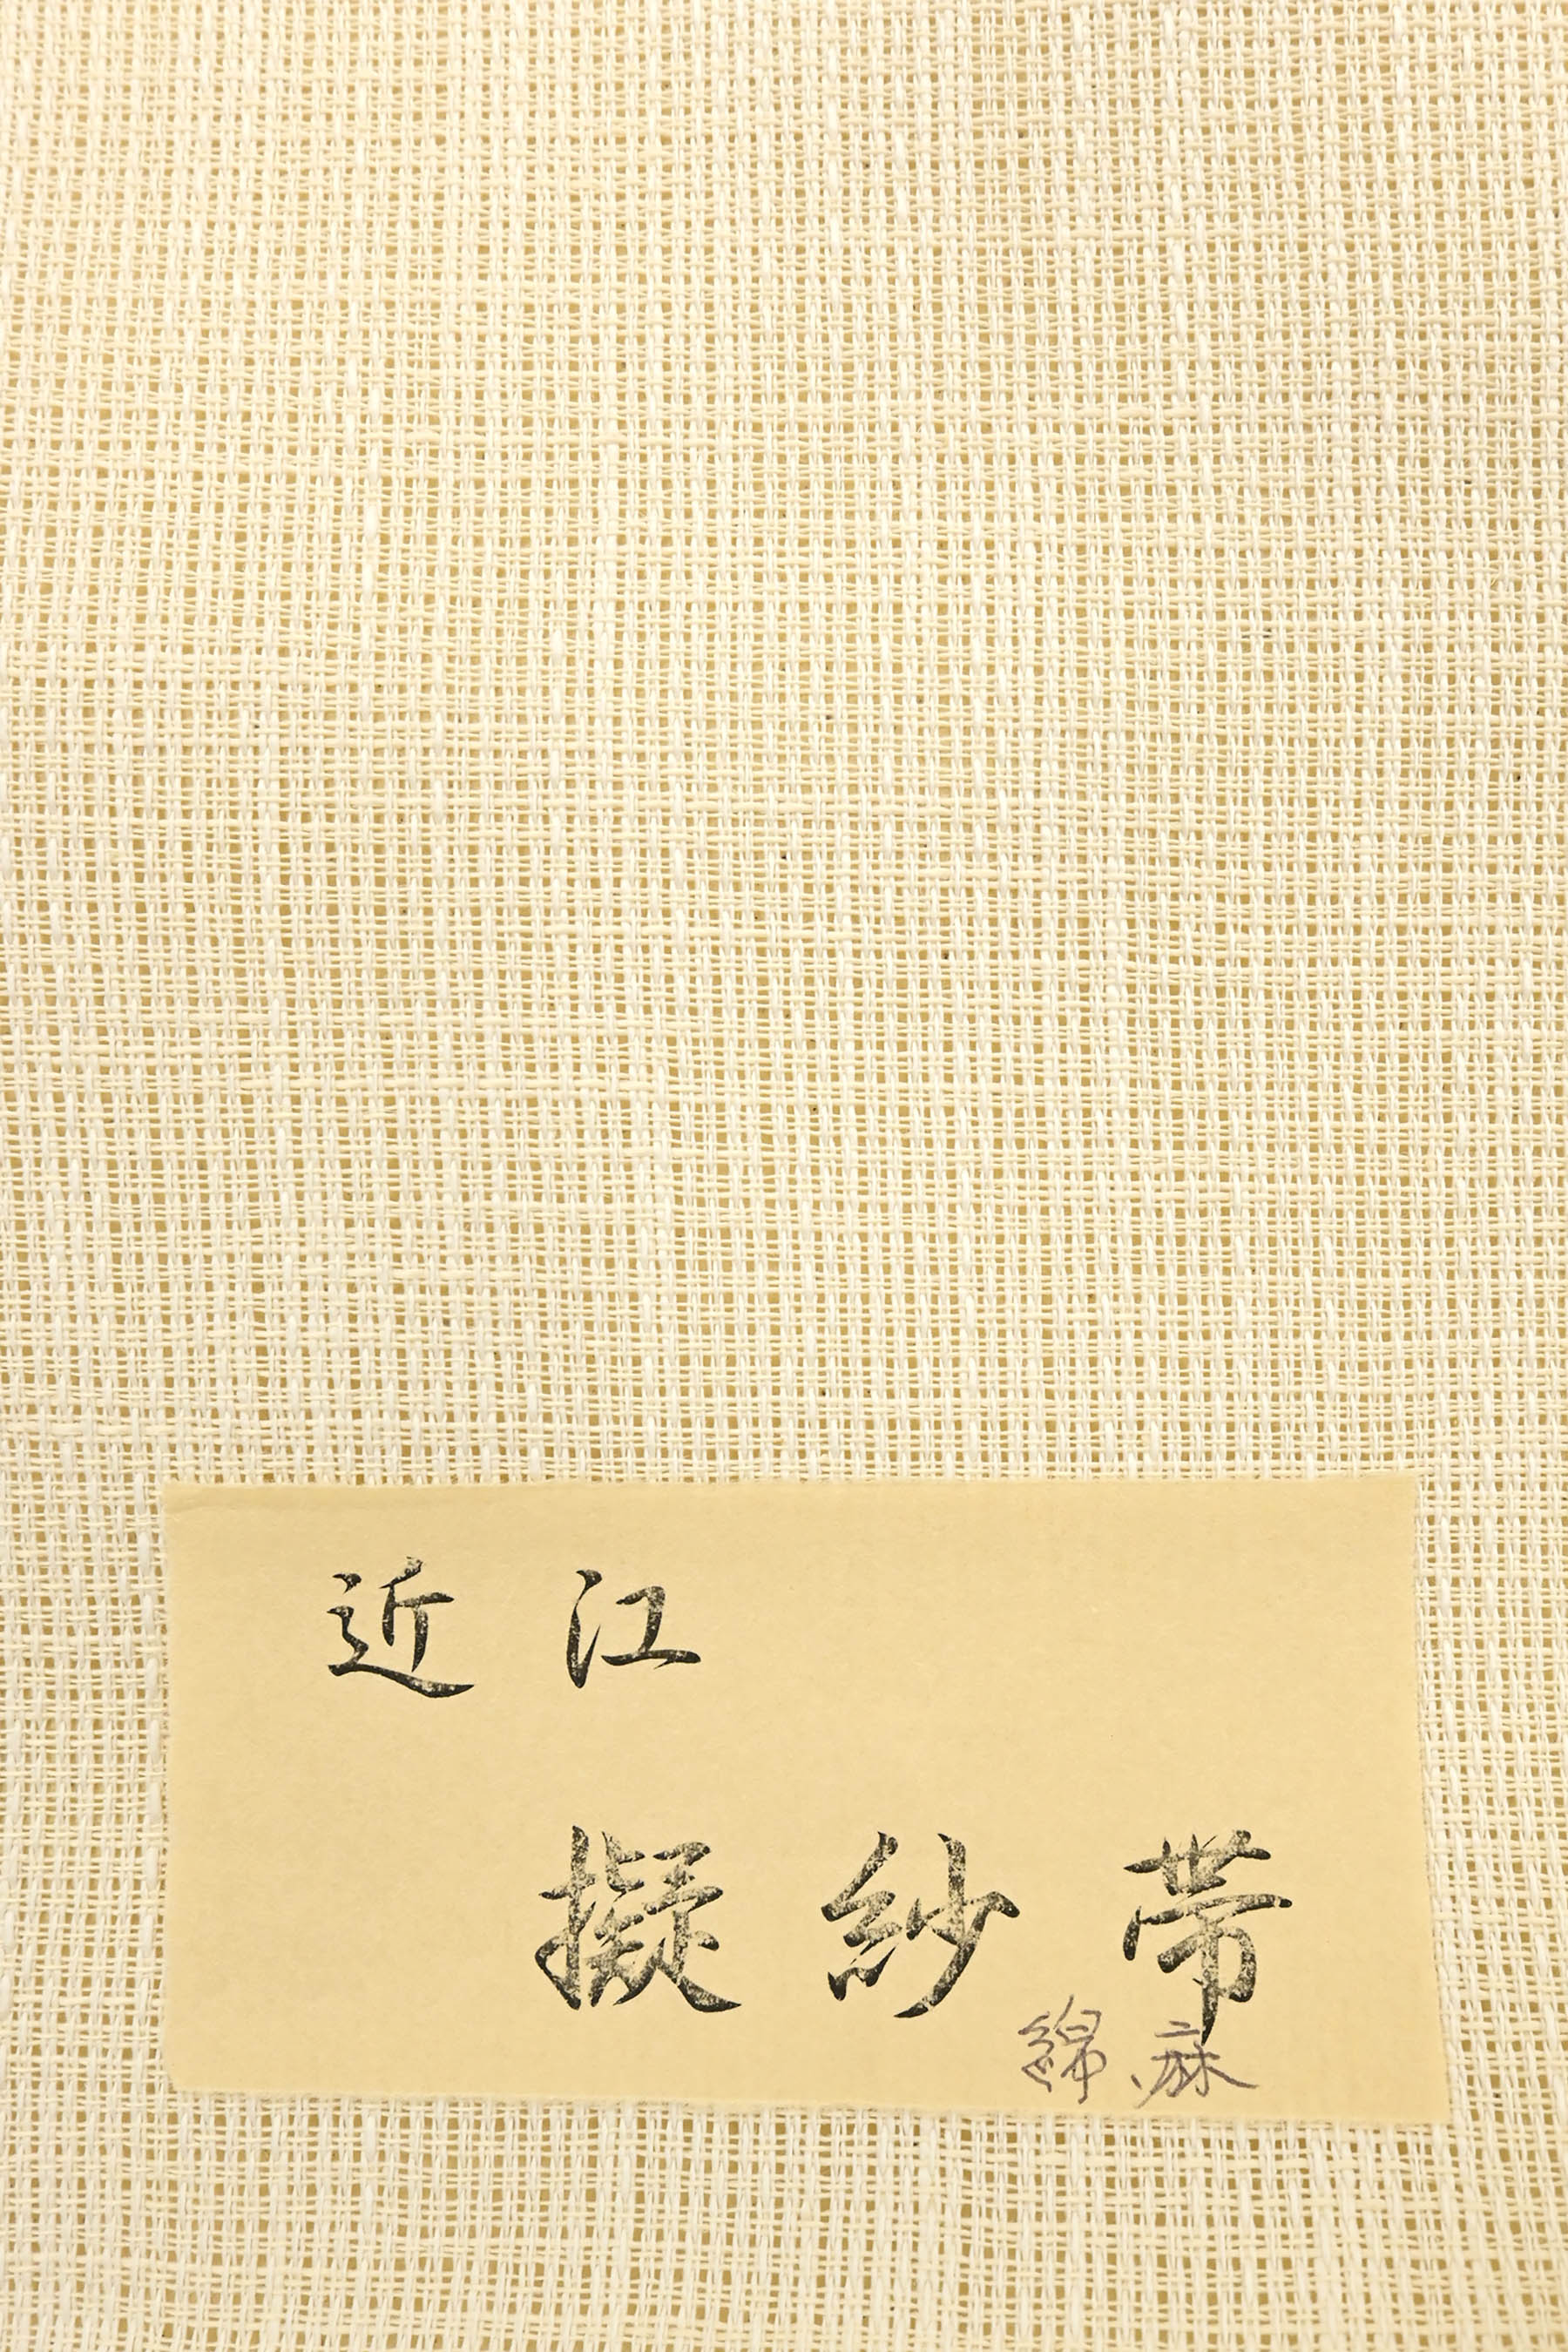 近江
擬紗帯
綿、麻